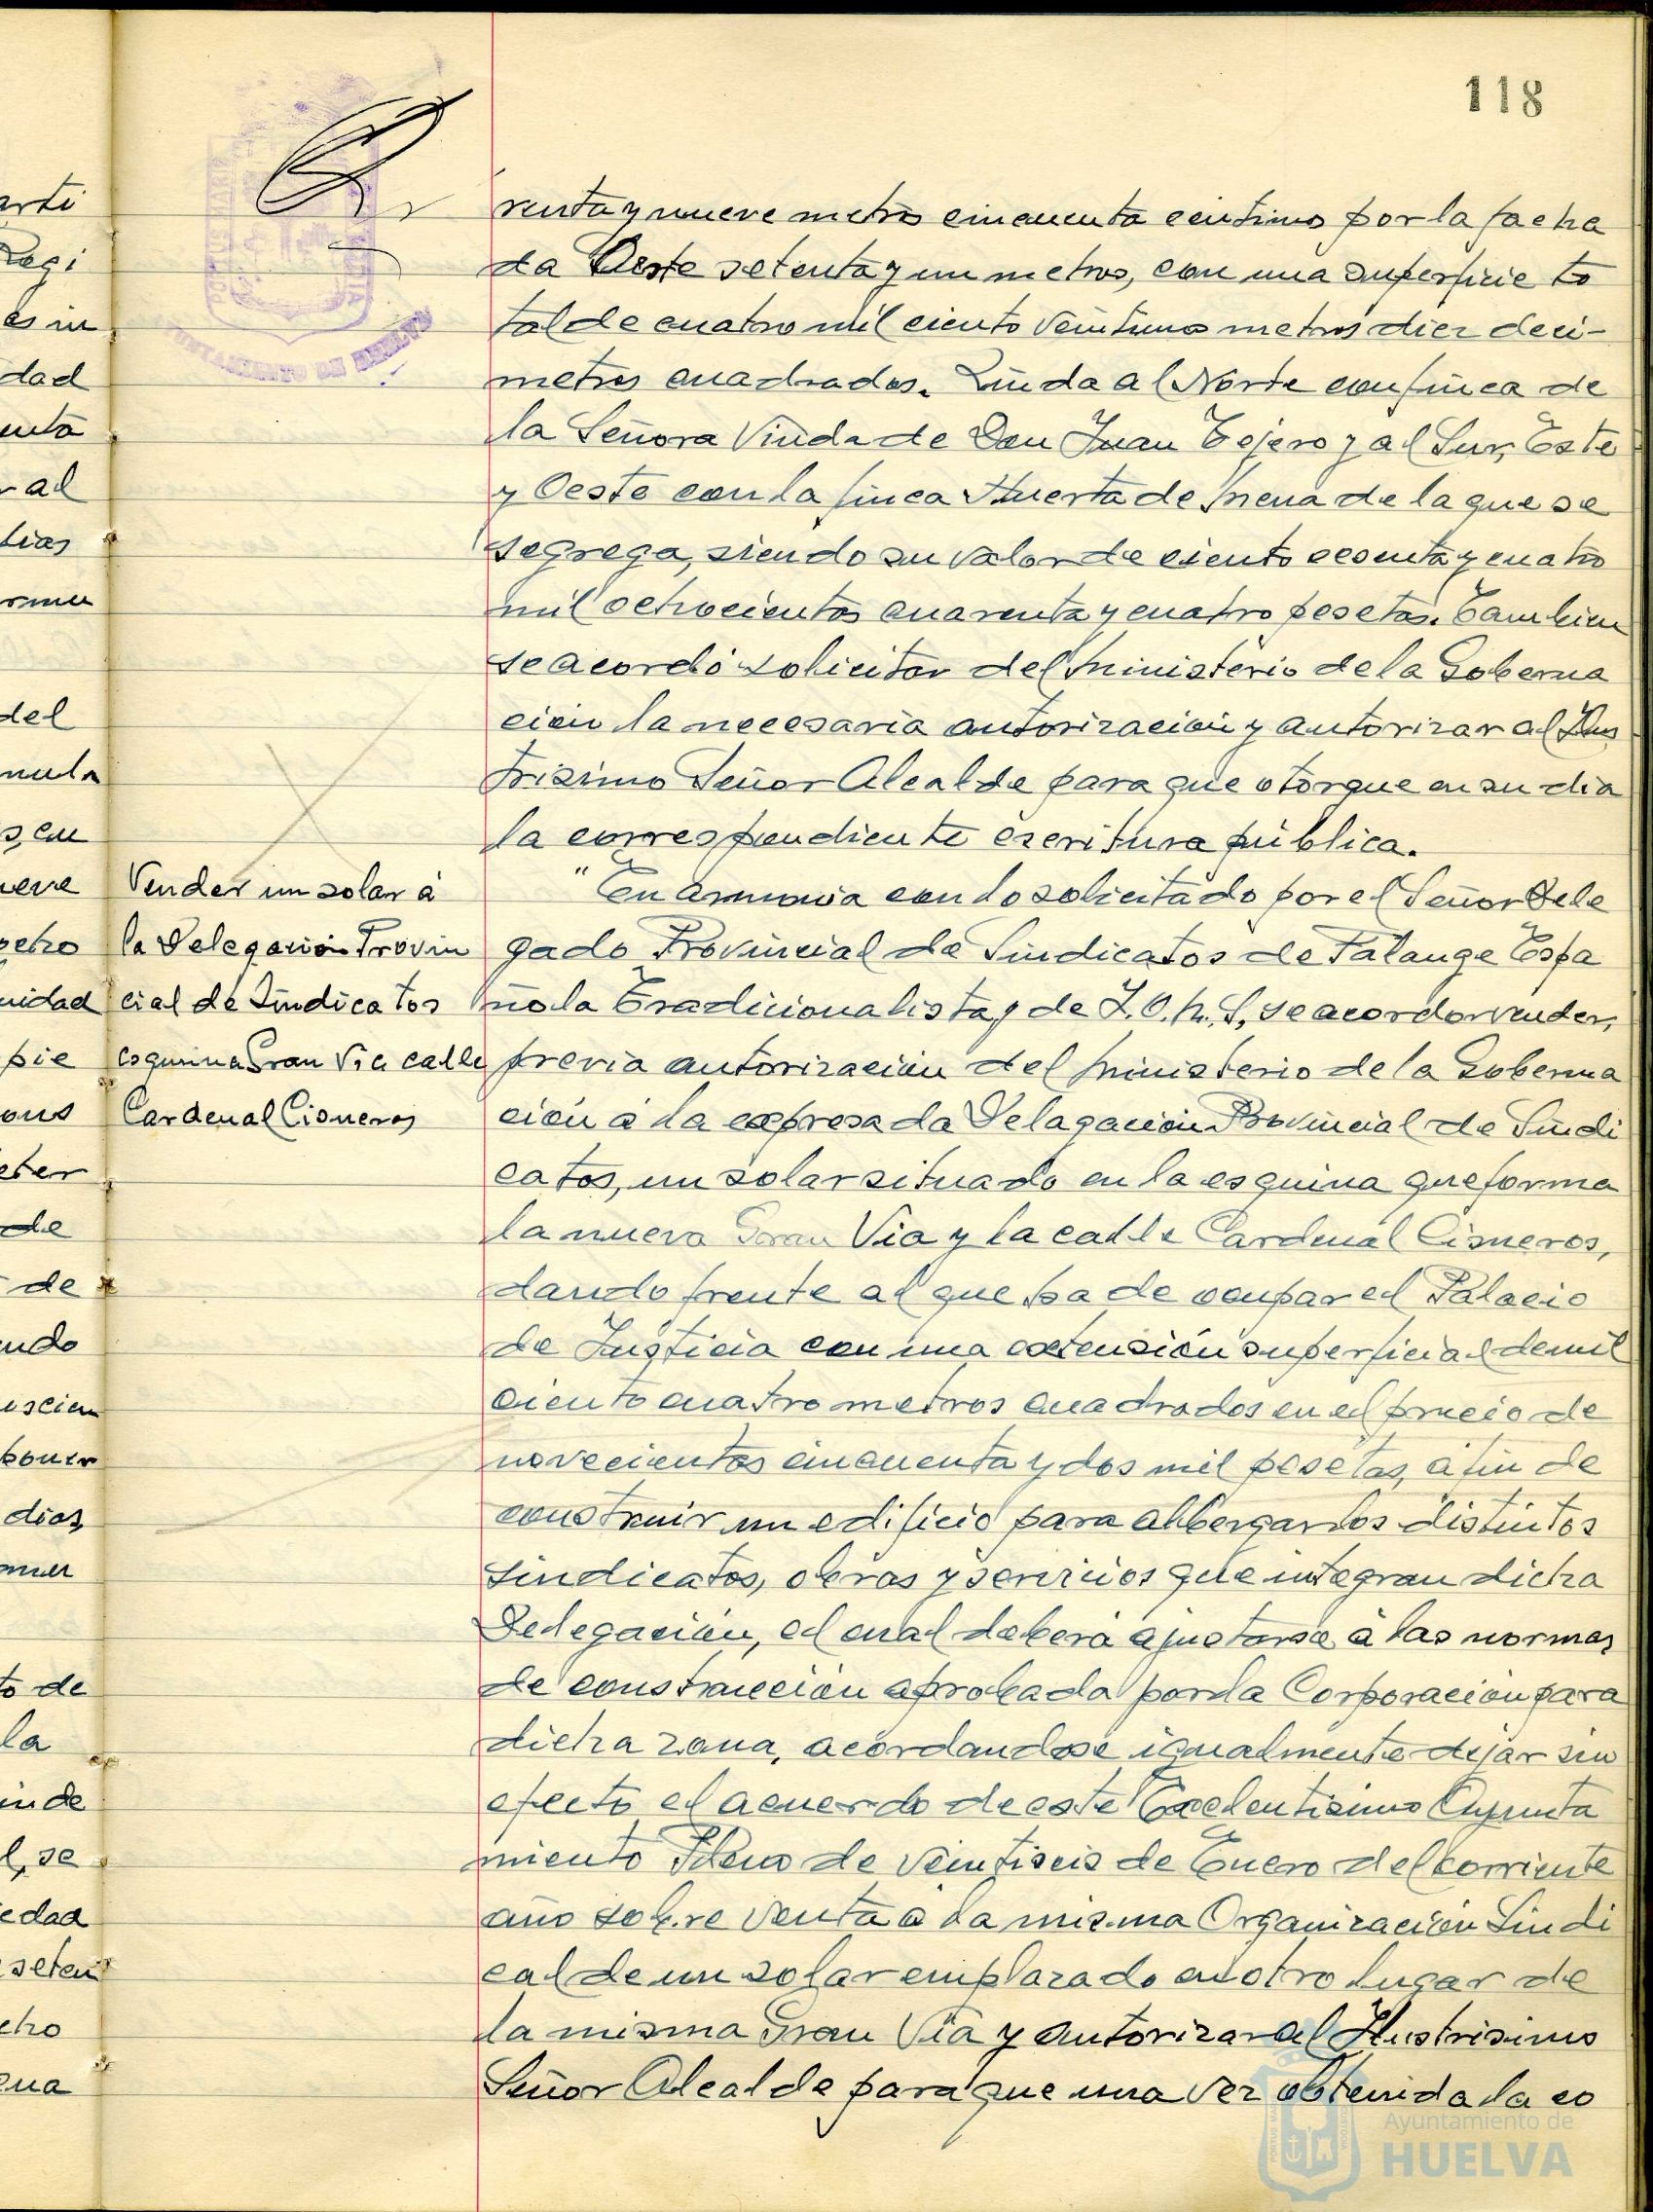 118
renta y nueve metros cincuenta centimos por la facha
da Oeste setenta y un metros, con una superficie to
tal de cuatro mil ciento veintiuno metros diez deci-
metros cuadrados. Linda al Norte con finca de
la Señora Viuda de Don Juan Tejero y al Sur, Este
y Oeste con la finca Huerta de Mena de la que se
segrega, siendo su valor de ciento sesenta y cuatro
mil ochocientos cuarenta y cuatro pesetas. Tambien
se acordó solicitar del Ministerio de la Goberna
ción la necesaria autorización y autorizar al Ilus
trisimo Señor Alcalde para que otorgue en su dia
la correspondiente escritura pública.
Vender un solar á
la Delegación Provin
cial de Sindicatos
esquina Gran Via calle
Cardenal Cisneros
"En armonia con lo solicitado por el Señor Dele
gado Provincial de Sindicatos de Falange Espa
ñola Tradicionalista y de J.O.N.S, se acordó vender,
previa autorización del Ministerio de la Goberna
ción á la expresada Delagación Provincial de Sindi
catos, un solar situado en la esquina que forma
la nueva Gran Via y la calle Cardenal Cisneros,
dando frente al que ha de ocupar el Palacio
de Justicia con una extensión superficial de mil
ciento cuatro metros cuadrados en el precio de
novecientas cincuenta y dos mil pesetas, á fin de
construir un edificio para albergar los distintos
sindicatos, obras y servicios que integran dicha
Delegación, el cual deberá ajustarse á las normas
de construcción aprobada por la Corporación para
dicha zona, acordandose igualmente dejar sin
efecto el acuerdo de este Excelentisimo Ayunta
miento Pleno de veintiseis de Enero del corriente
año sobre venta á la misma Organización Sindi
cal de un solar emplazado en otro lugar de
la misma Gran Via y autorizar al Ilustrisimo
Señor Alcalde para que una vez obtenida la co
Ayuntamiento de
HUELVA